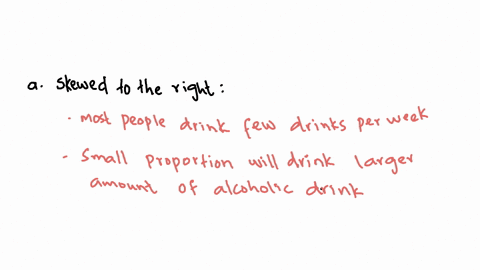 a. Skewed to the right :
· most people drink few drinks per week
- Small proportion will drink larger
amount of alcoholic drink